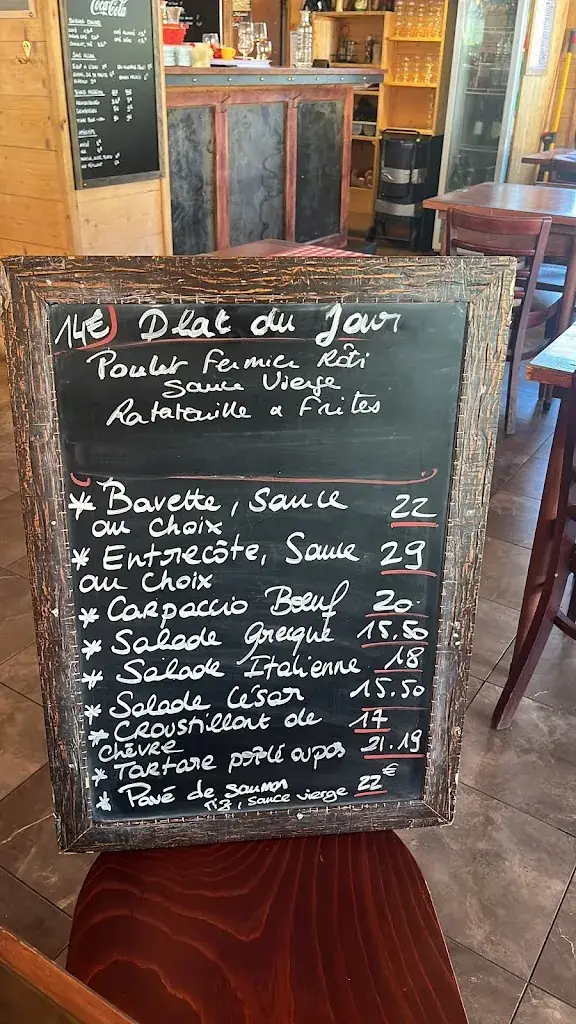 Coca-Cola
14€ Plat du Jour
Poulet Fermier Rôti
Sauce Vierge
Ratatouille & Frites
* Bavette, Sauce 22
au Choix
* Entrecôte, Sauce 29
au Choix
* Carpaccio Bœuf 20.
* Salade Grecque 15.50
* Salade Italienne 18
* Salade César 15.50
* Croustillant de 17
Chèvre
* Tartare poêlé ou pas 21.19
* Pavé de saumon 22€
riz, sauce vierge